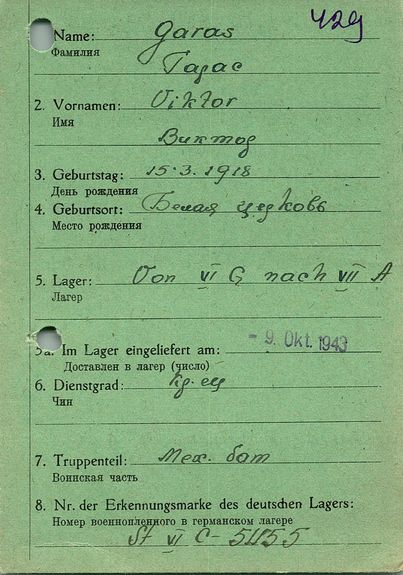 429
Name: Garas
Фамилия
Гарас
2. Vornamen: Viktor
Имя
Виктор
3. Geburtstag: 15.3.1918
День рождения
4. Geburtsort: Белая церковь
Место рождения
5. Lager: Von VI G nach VII A
Лагер
5a. Im Lager eingeliefert am: - 9. Okt. 1943
Доставлен в лагер (число)
6. Dienstgrad:
Чин
7. Truppenteil: Мех. бат
Воинская часть
8. Nr. der Erkennungsmarke des deutschen Lagers:
Номер военнопленного в германском лагере
St VI C - 5455